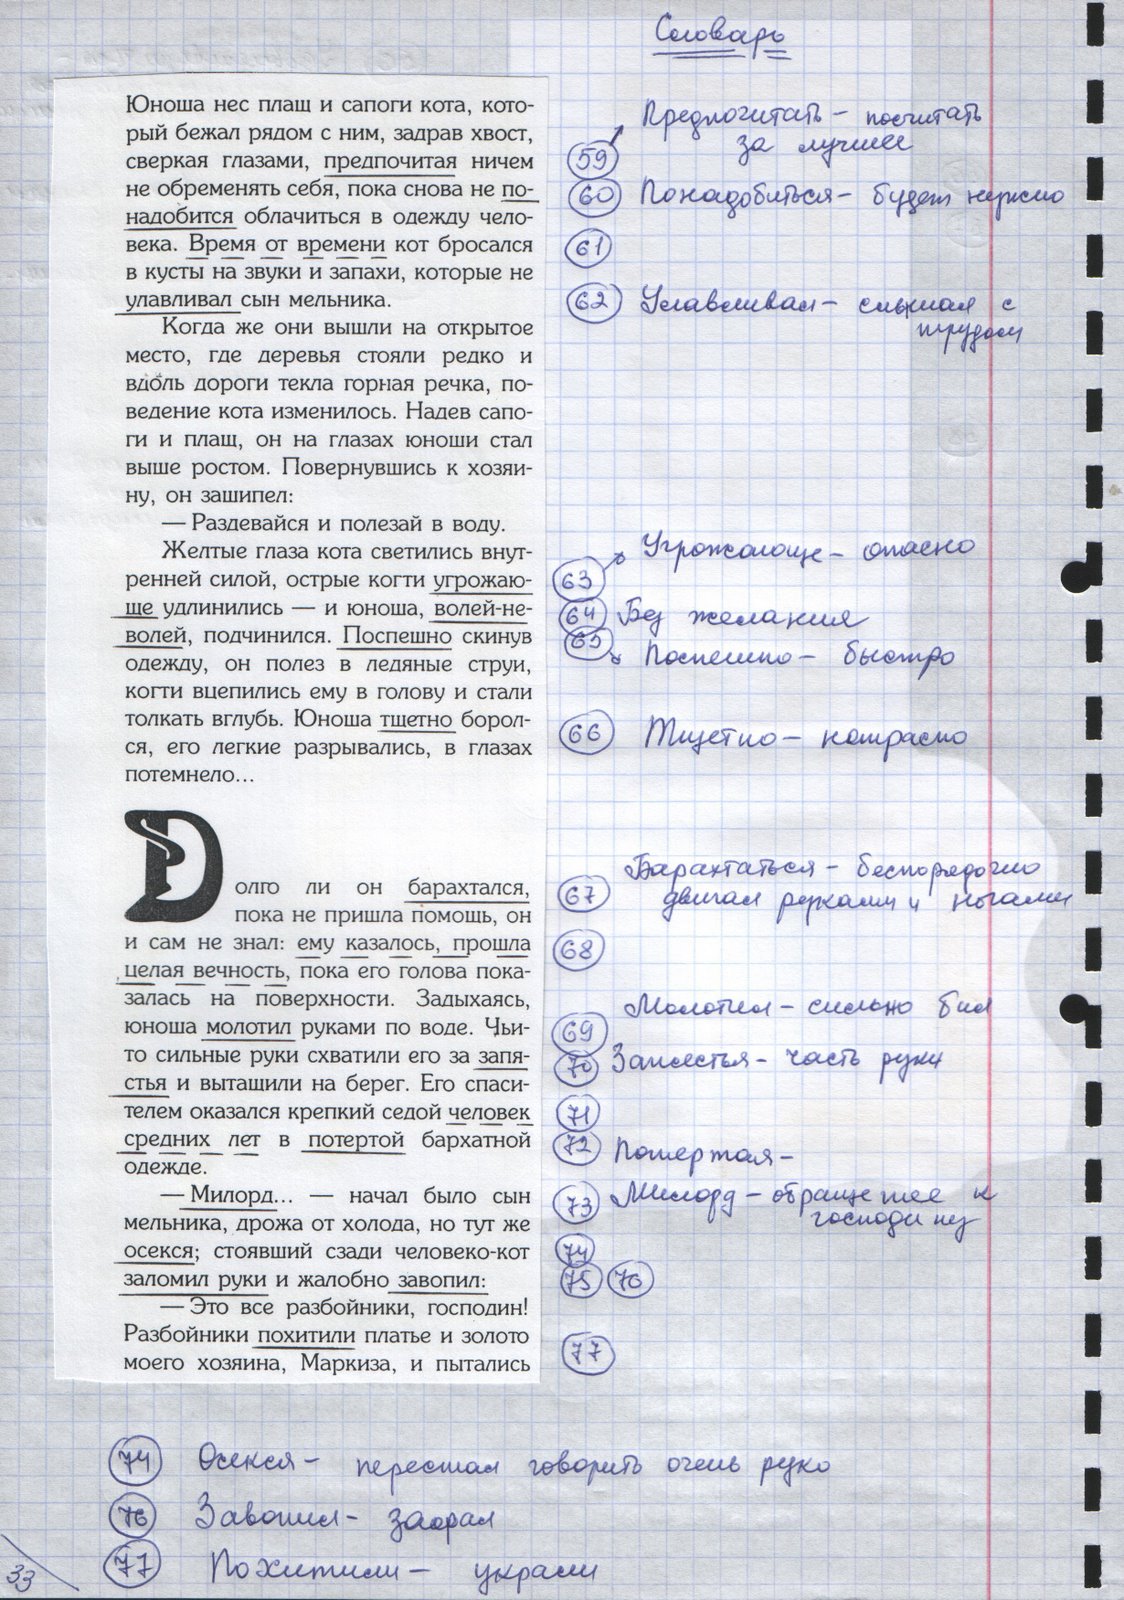 Словарь
Юноша нес плащ и сапоги кота, кото-
рый бежал рядом с ним, задрав хвост,
сверкая глазами, предпочитая ничем
не обременять себя, пока снова не по-
надобится облачиться в одежду чело-
века. Время от времени кот бросался
в кусты на звуки и запахи, которые не
улавливал сын мельника.
Когда же они вышли на открытое
место, где деревья стояли редко и
вдоль дороги текла горная речка, по-
ведение кота изменилось. Надев сапо-
ги и плащ, он на глазах юноши стал
выше ростом. Повернувшись к хозяи-
ну, он зашипел:
— Раздевайся и полезай в воду.
Желтые глаза кота светились внут-
ренней силой, острые когти угрожаю-
ще удлинились — и юноша, волей-не-
волей, подчинился. Поспешно скинув
одежду, он полез в ледяные струи,
когти вцепились ему в голову и стали
толкать вглубь. Юноша тщетно борол-
ся, его легкие разрывались, в глазах
потемнело...
Долго ли он барахтался,
пока не пришла помощь, он
и сам не знал: ему казалось, прошла
целая вечность, пока его голова пока-
залась на поверхности. Задыхаясь,
юноша молотил руками по воде. Чьи-
то сильные руки схватили его за запя-
стья и вытащили на берег. Его спаси-
телем оказался крепкий седой человек
средних лет в потертой бархатной
одежде.
— Милорд... — начал было сын
мельника, дрожа от холода, но тут же
осекся; стоявший сзади человеко-кот
заломил руки и жалобно завопил:
— Это все разбойники, господин!
Разбойники похитили платье и золото
моего хозяина, Маркиза, и пытались
59 Предпочитать – посчитать
за лучшее
60 Понадобиться – будет нужно
61
62 Улавливал – слышал с
трудом
63 Угрожающе – опасно
64 Без желания
65 Поспешно – быстро
66 Тщетно – напрасно
67 Барахтаться – беспорядочно
двигал руками и ногами
68
69 Молотил – сильно бил
70 Запястья – часть руки
71
72 Потертая –
73 Милорд – обращение к
господину
74
75 76
77
74 Осекся – перестал говорить очень резко
76 Завопил – заорал
77 Похитили – украли
33